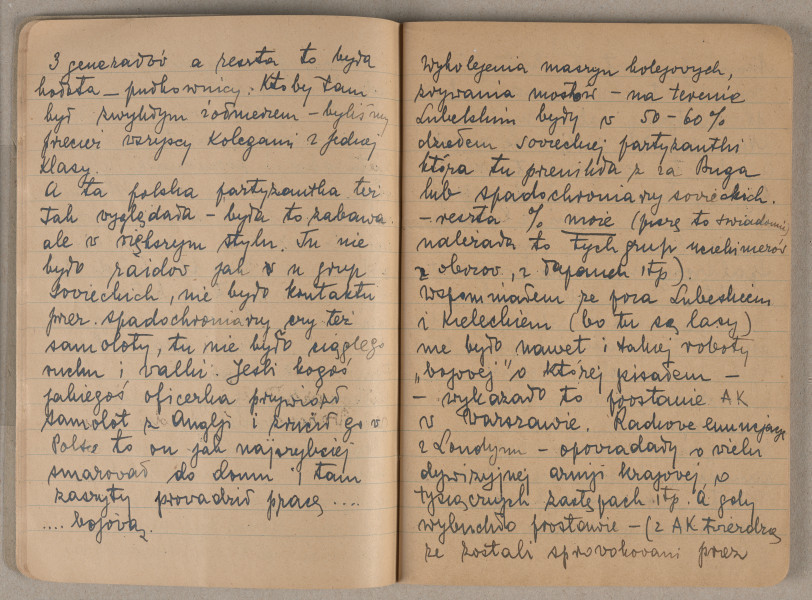 3 generałów a reszta to była
hołota – pułkownicy. Kto by tam
był zwykłym żołnierzem – byliśmy
przecież wszyscy kolegami z jednej
klasy.
A ta polska partyzantka też
tak wyglądała – była to zabawa
ale w większym stylu. Tu nie
było raidów jak w n grup
sovieckich, nie było kontaktu
przez spadochroniarzy czy też
samoloty, tu nie było ciągłego
ruchu i walki. Jeśli kogoś
jakiegoś oficerka przywiózł
samolot z Anglji i zrzucił go w
Polsce to on jak najszybciej
smarował do domu i tam
zaszyty prowadził pracę ....
.... bojową.
wykolejenia maszyn kolejowych,
zrywania mostów – na terenie
Lubelskim były w 50–60%
dziełem sovieckiej partyzantki
która tu przenikła z za Buga
lub spadochroniarzy sovieckich.
– reszta % może (piszę to świadomie)
należała to tych grup uciekinierów
z obozów, z łapanek itp).
Wspomniałem że poza Lubelskiem
i Kieleckiem (bo tu są lasy)
nie było nawet i takiej roboty
„bojowej" o której pisałem –
– wykazało to powstanie AK
w Warszawie. Radiowe enuncjacje
z Londynu – opowiadały o wielu
dywizyjnej armji krajowej, o
tysiącznych zastępach itp. A gdy
wybuchło powstanie – (z AK twierdzą
że zostali sprowokowani przez